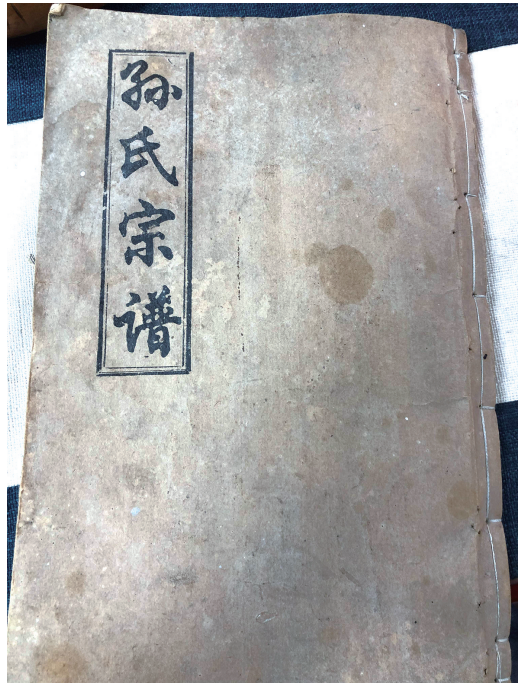 孙氏宗谱